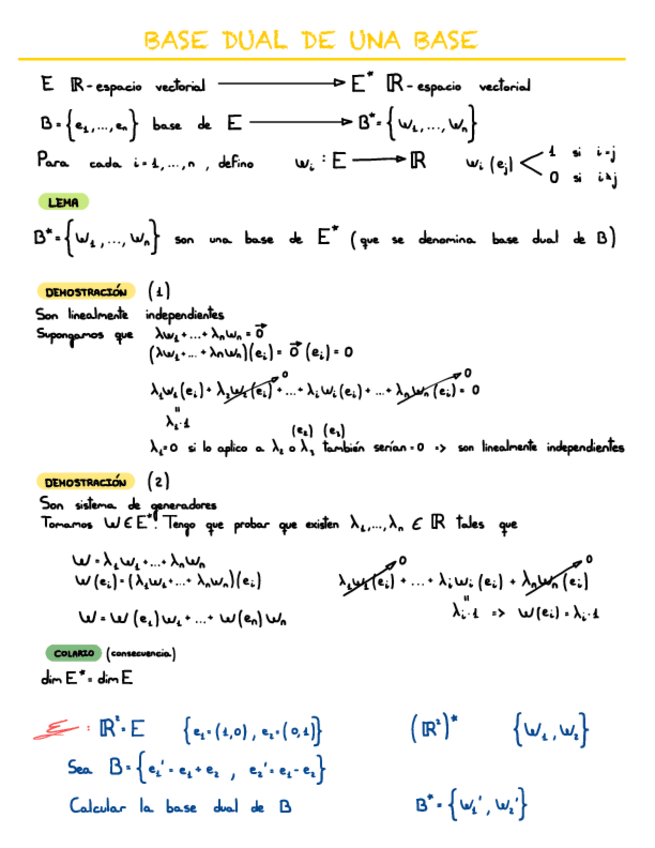 BASE DUAL DE UNA BASE
E ℝ-espacio vectorial ⟶ E* ℝ-espacio vectorial
B = {e₁,...,eₙ} base de E ⟶ B* = {w₁,...,wₙ}
Para cada i = 1,...,n, defino wᵢ : E ⟶ ℝ wᵢ(eⱼ) < 1 si i=j
0 si i≠j
LEMA
B* = {w₁,...,wₙ} son una base de E* (que se denomina base dual de B)
DEMOSTRACIÓN (1)
Son linealmente independientes
Supongamos que λw₁+...+λₙwₙ = 0⃗
(λw₁+...+λₙwₙ)(eᵢ) = 0⃗ (eᵢ) = 0
λ₁w₁(eᵢ) + λ₂w₂(eᵢ) + ... + λᵢwᵢ(eᵢ) + ... + λₙwₙ(eᵢ) = 0
0 0
"
λᵢ·1
(e₂) (e₃)
λᵢ=0 si lo aplico a λ₂ o λ₃ también serían = 0 => son linealmente independientes
DEMOSTRACIÓN (2)
Son sistema de generadores
Tomamos W ∈ E*. Tengo que probar que existen λ₁,...,λₙ ∈ ℝ tales que
W = λ₁w₁+...+λₙwₙ
W(eᵢ) = (λ₁w₁+...+λₙwₙ)(eᵢ) λ₁w₁(eᵢ) + ... + λᵢwᵢ(eᵢ) + λₙwₙ(eᵢ)
0 0
"
W = W(e₁)w₁ + ... + W(eₙ)wₙ λᵢ·1 => W(eᵢ) = λᵢ·1
COLARIO (consecuencia)
dim E* = dim E
E : ℝ² = E {e₁=(1,0), e₂=(0,1)} (ℝ²)* {w₁, w₂}
Sea B = {e₁' = e₁+e₂ , e₂' = e₁-e₂}
Calcular la base dual de B B* = {w₁', w₂'}